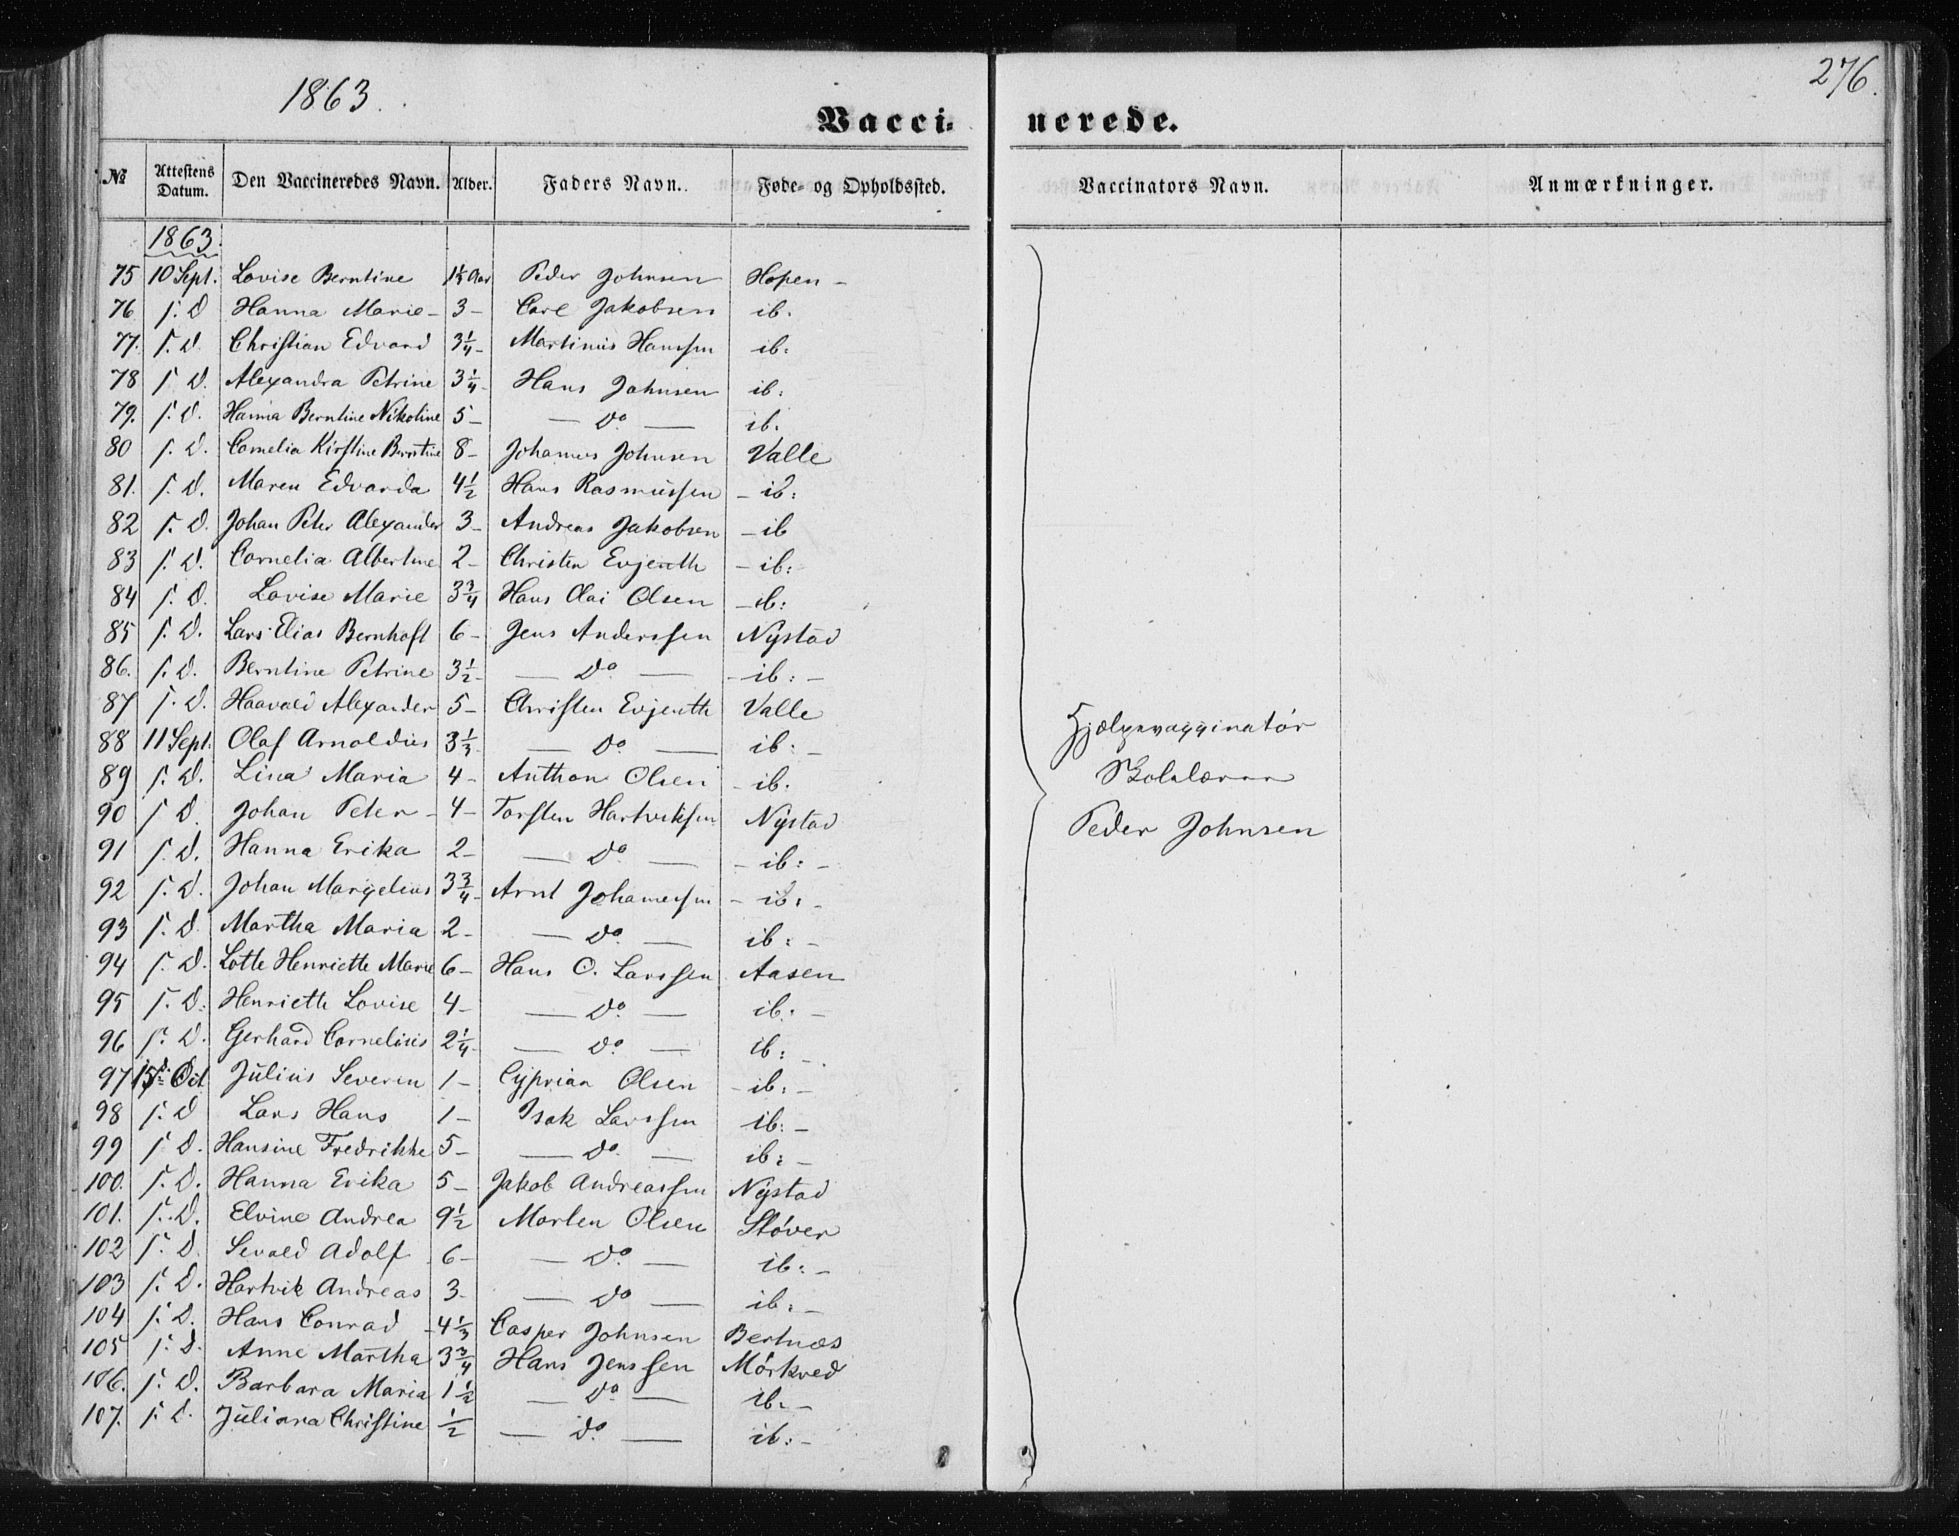 1863.
276.
Vacci-nerede.
№ Attestens Datum. Den Vaccineredes Navn. Alder. Faders Navn. Føde- og Opholdssted. Vaccinators Navn. Anmærkninger.
1863.
75 10 Sept. Lovise Berntine Aar Peder Johnsen Hopen -
76 s. D Hanna Marie - 3 - Carl Jakobsen ib.
77. s. D. Christian Edvard 3 1/4 - Martinus Hanssen ib:
78 s D. Alexandra Petrine 3 1/4 - Hans Johnsen ib:
79. s. D. Hanna Berntine Nikoline 5 - — Do — ib.
80 s. D. Cornelia Kirstine Berntine 8 - Johannes Johnsen Valle
81. s. D. Maren Edvarda 4 1/2 Hans Rasmussen - ib:
82 s. D. Johan Peter Alexander 3 - Andreas Jakobsen - ib
83 s. D. Cornelia Albertine 2 - Christen Evjenth - ib:
84 s. D. Lovise Marie 3 3/4 Hans Olai Olsen - ib:
85 s. D. Lars Elias Bernhoft 6 - Jens Anderssen Nystad
86. s. D. Berntine Petrine 3 1/2 - — Do — - ib: -
87 s. D. Haavald Alexander 5 - Christen Evjenth Valle
88 11 Sept. Olaf Arnoldus 3 1/3 - — Do. — ib: -
89 s. D. Lina Maria 4 - Anthon Olsen - ib.
90 s D. Johan Peter - 4 - Torsten Hartviksen Nystad
91 s. D. Hanna Erika 2 - — Do — - ib: -
92 s. D. Johan Margelius 3 3/4 - Arnt Johannessen - ib: -
93 s. D. Martha Maria 2 - — Do. — ib: -
94 s. D. Lotte Henriette Marie 6 - Hans O. Larssen Aasen
95 s. D. Henriette Lovise 4 - — Do — ib: -
96 s. D. Gerhard Cornelius 2 1/4 - — Do. — ib: -
97 15de Oct Julius Severin 1 - Cyprian Olsen - ib: -
98 s. D Lars Hans 1 - Isak Larssen ib: -
99 s D. Hansine Fredrikke 5 - — Do. — ib: -
100. s. D. Hanna Erika 5 - Jakob Andreassen Nystad
101. s. D. Elvine Andrea 9 1/2 Morten Olsen Støver
102 s. D. Sevald Adolf 6 - — Do. — ib: -
103 s. D. Hartvik Andreas 3 - — Do — ib: -
104 s. D. Hans Conrad - 4 1/3 Casper Johnsen Bertnæs
105 s. D. Anne Martha 3 3/4 Hans Jenssen Mørkved
106. s. D. Barbara Maria 1 1/2 — Do — ib. -
107. s. D. Juliana Christine 1/2 — Do. — ib: -
Hjælpevaxxinatör
Skolelærer
Peder Johnsen